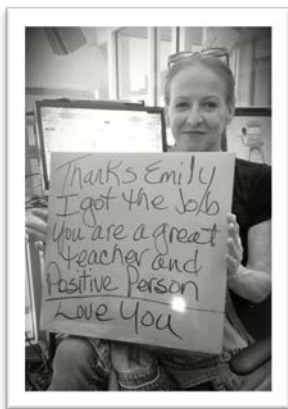 Thanks Emily
I got the Job
You are a great
teacher and
Positive Person
Love You